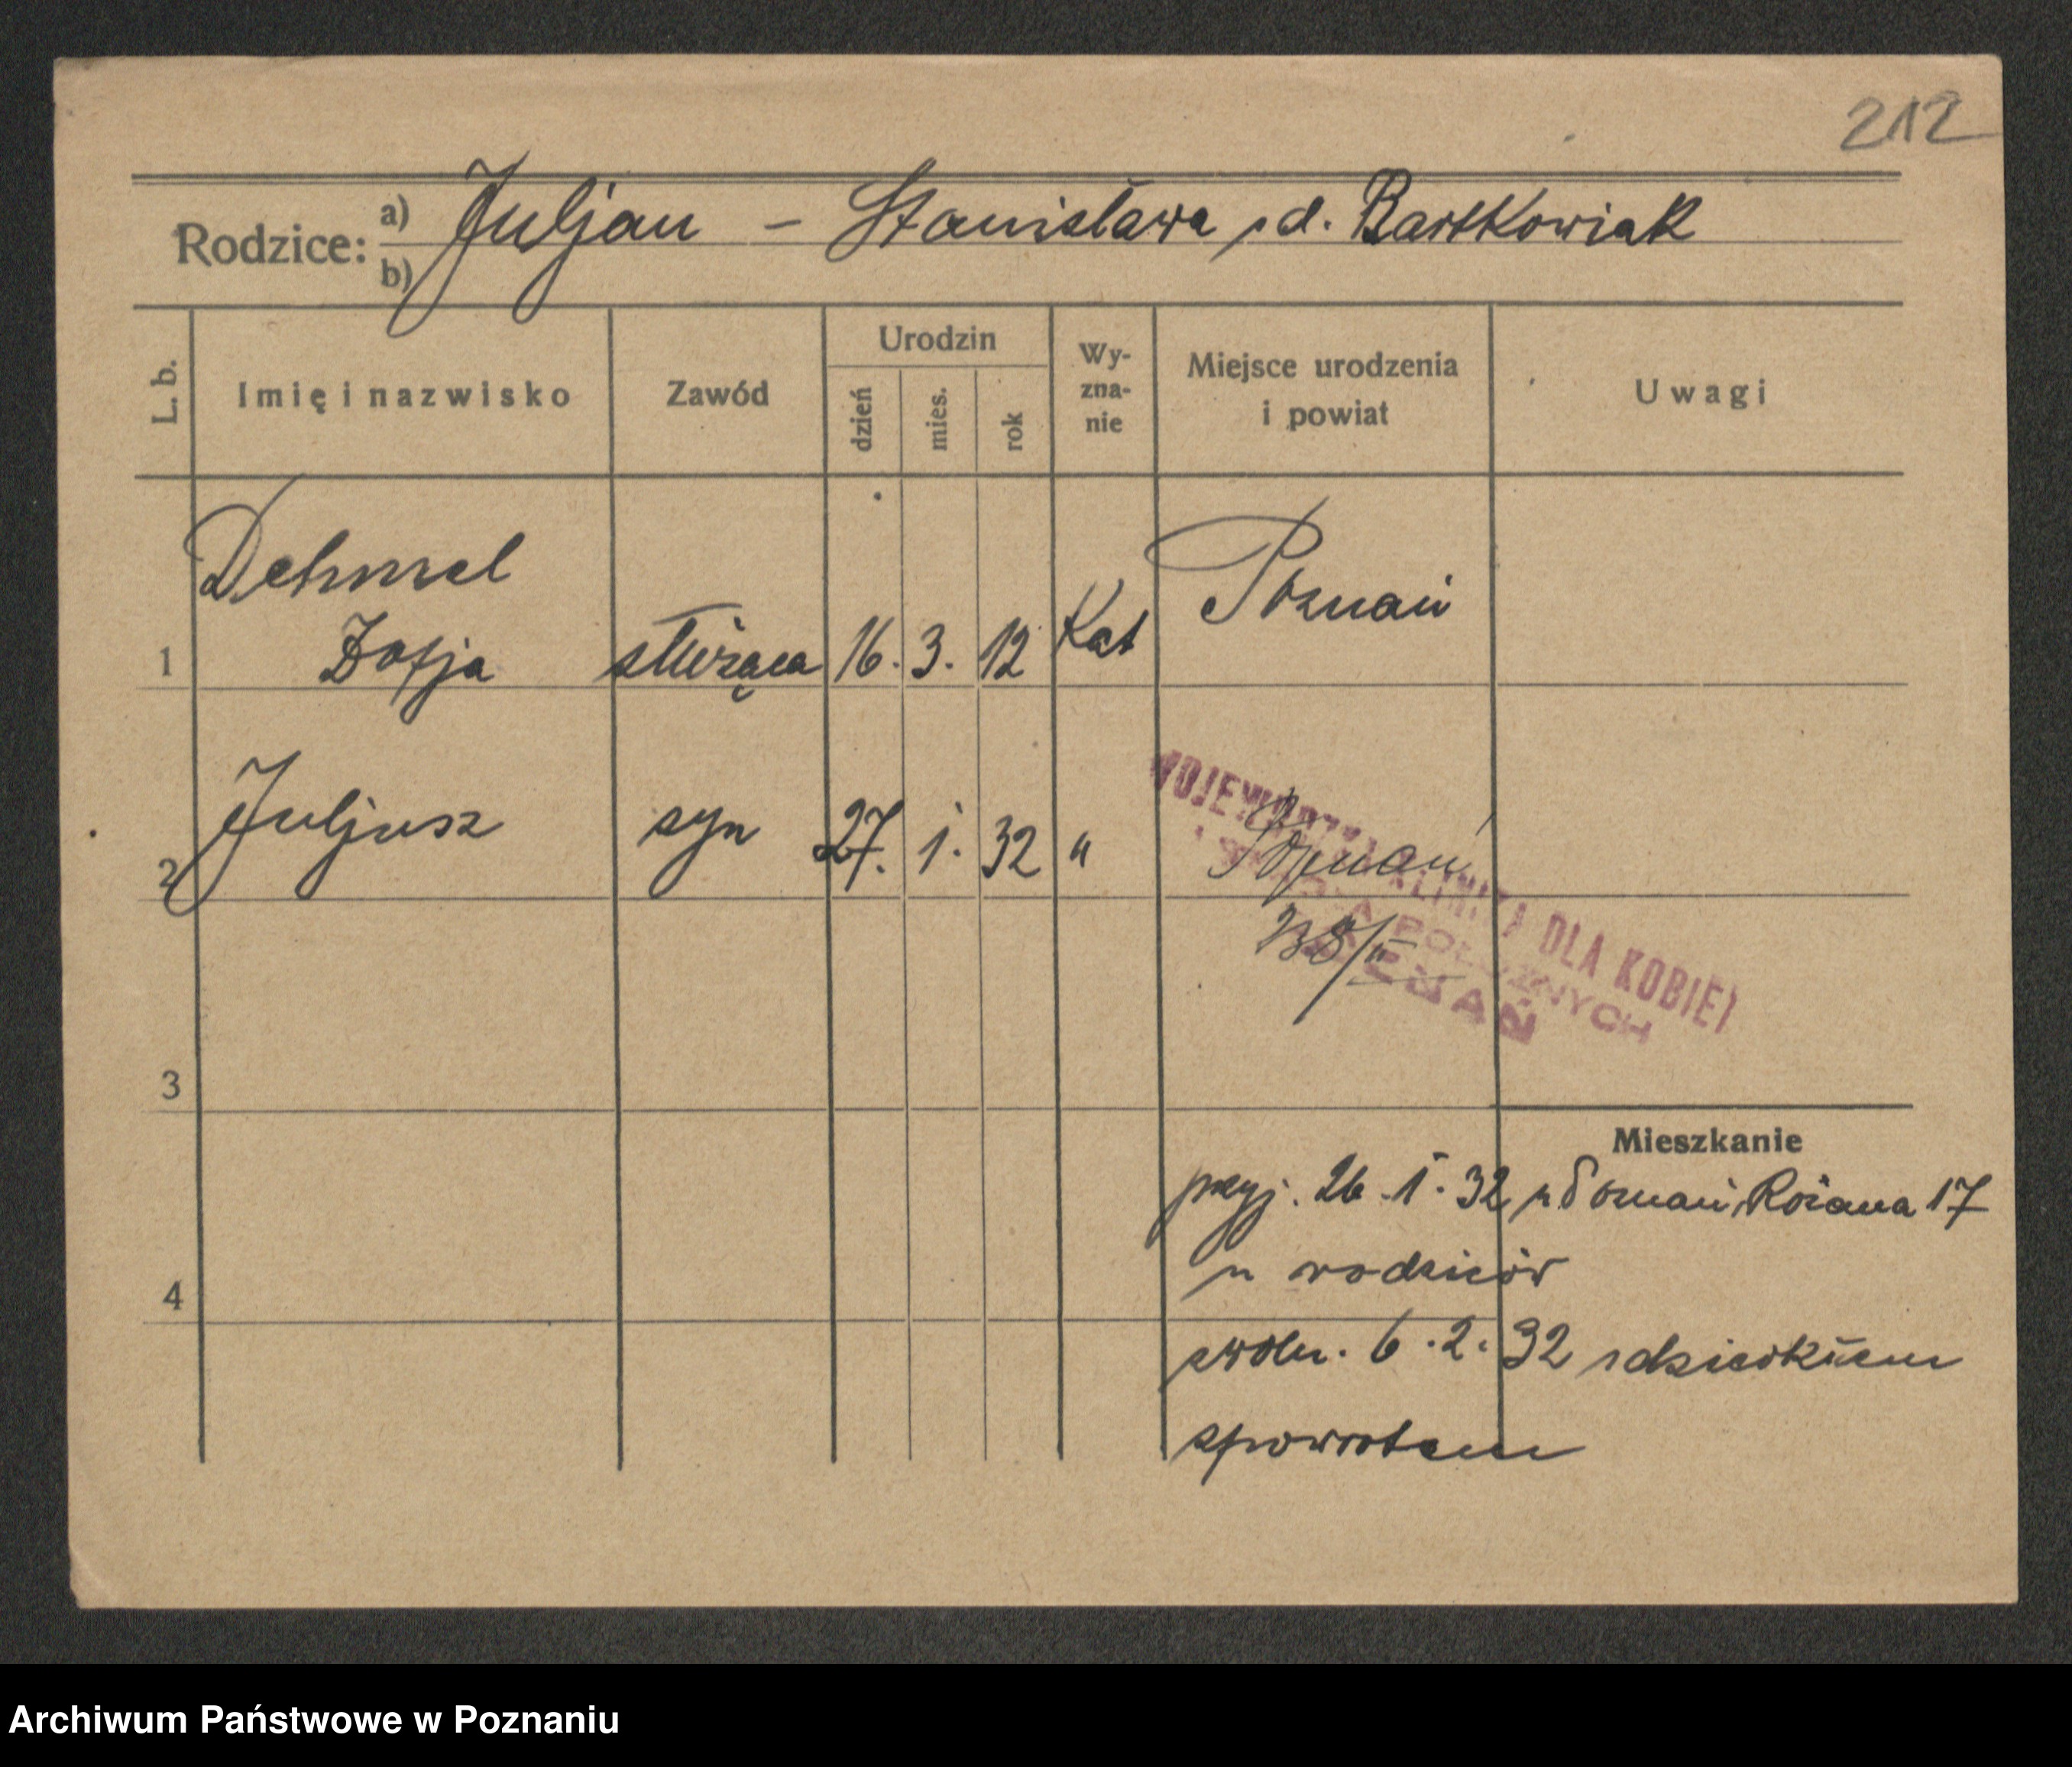 212
Rodzice: a) Juljan - Stanisława z d. Bartkowiak
b)
L. b.
Imię i nazwisko
Zawód
Urodzin
dzień
mies.
rok
Wy-
zna-
nie
Miejsce urodzenia
i powiat
Uwagi
Dehmel
Poznań
1 Zofja służąca 16. 3. 12 Kat
2 Juljusz syn 27. 1. 32 " Poznań
WOJEWÓDZKA KLINIKA DLA KOBIET
POŁOŻNYCH
POZNAŃ
238/II
3
Mieszkanie
przyj. 26.1.32 z Poznań Różana 17
4
u rodziców
zwoln. 6.2.32 z dzieckiem
spowrotem
Archiwum Państwowe w Poznaniu